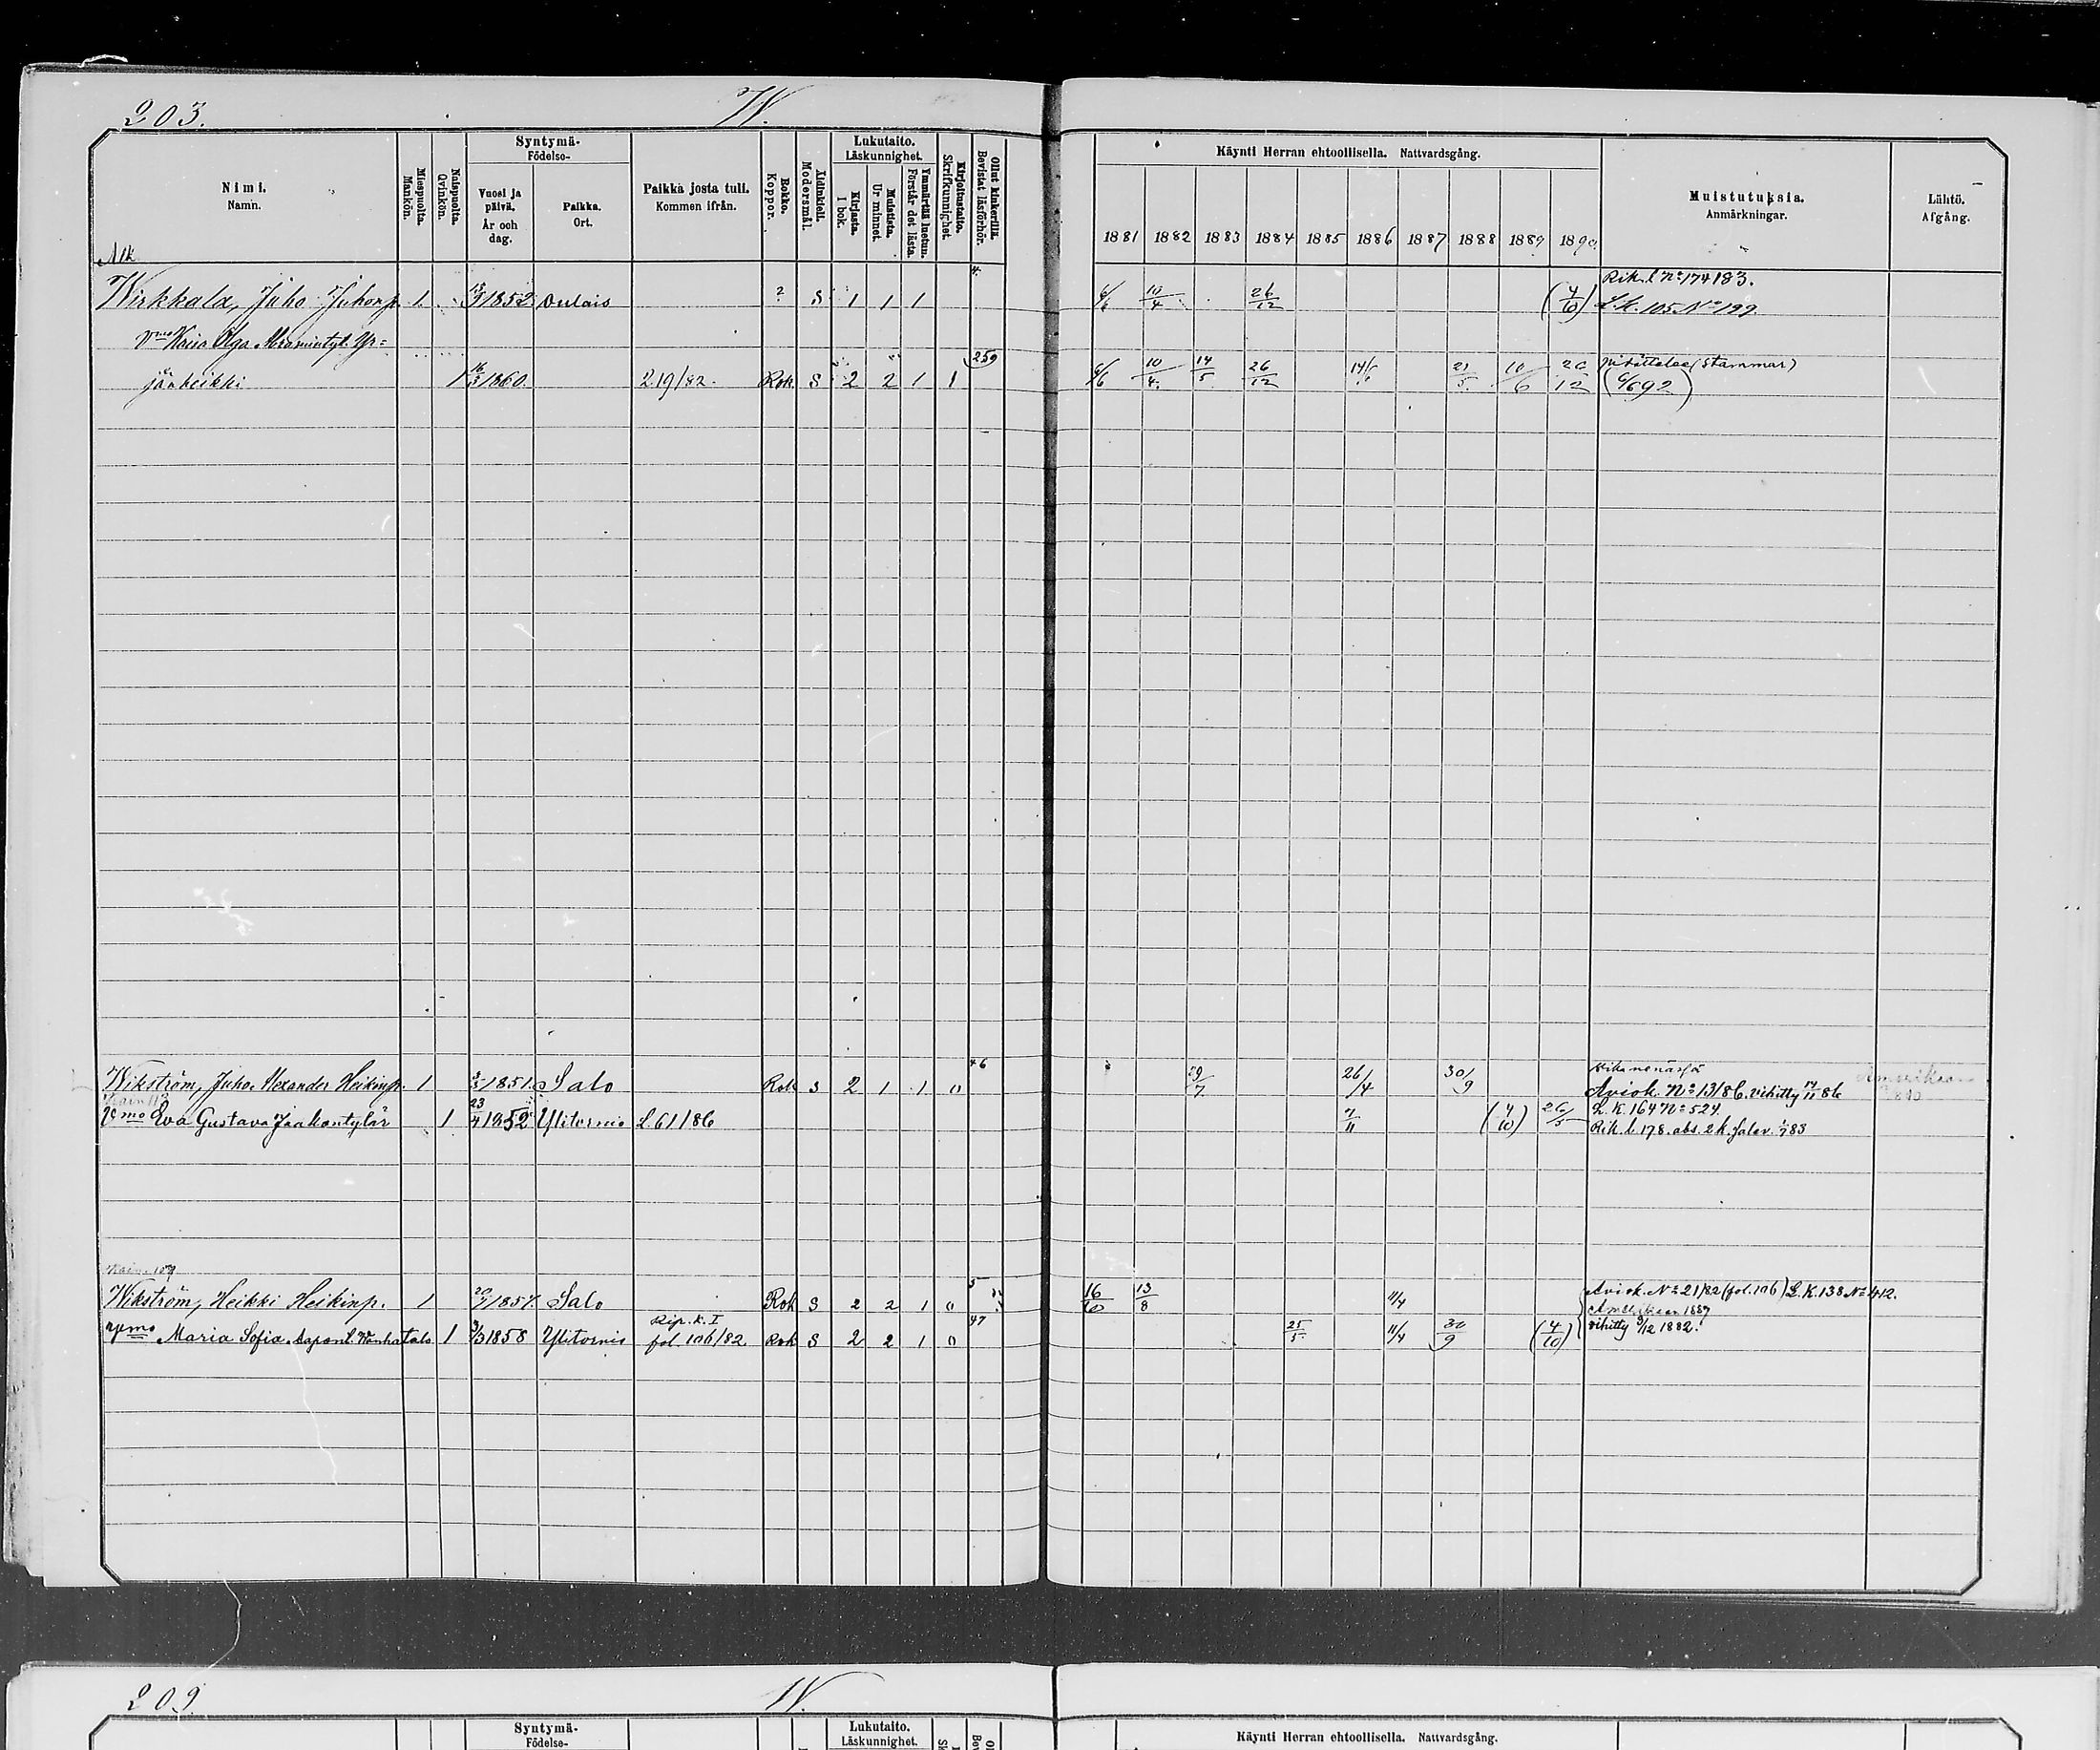 203. W.
Nimi. Namn.
Miespuolta. Mankön.
Naispuolta. Qvinkön.
Syntymä- Födelse-
Vuosi ja päivä. År och dag.
Paikka. Ort.
Paikka josta tuli. Kommen ifrån.
Rokko. Koppor.
Äidinkieli. Modersmål.
Lukutaito. Läskunnighet.
Kirjasta. I bok.
Muistista. Ur minnet.
Ymmärtää luetun. Förstår det lästa.
Kirjoitustaito. Skrifkunnighet.
Ollut kinkerillä. Bevistat läsförhör.
Käynti Herran ehtoollisella. Nattvardsgång.
1881 1882 1883 1884 1885 1886 1887 1888 1889 1890
Muistutuksia. Anmärkningar.
Lähtö. Afgång.
4. Rik. l No 174 183.
Wirkkala, Juho Juhonp. 1 1852 Oulais ? S 1 1 1 6/6 10/4 26/12 (4/10) L.K. 105 No 199
Vmo Kaisa Olga
259
jänheikki 1 16/3 1860. 219/82. Rok S 2 2 1 1 6/6 10/4 14/5 26/12 14/6 21/5 10/6 26/12 (Stammar)
(6/692)
46
Wikström, Juho Alexander Heikinp. 1 1851. Salo Rok S 2 1 1 0 29/7 26/4 30/9 Aviok. No 13/86. vihitty 14/11 86 Amerikaan
Vmo Eva Gustava Jaakontytär 1 23/4 1852 Ylitornio L 61/86 7/11 (4/10) 26/5 L.K. 164 No 524.
Rik. l 178. abs. 2 k. 83
5
Wikström, Heikki Heikinp. 1 20/7 1857. Salo Rok S 2 2 1 0 16/10 13/8 11/4 Aviok. No 21/82 (fol. 106) L.K. 138 No 412.
Rip. k. I 47 Amerikaan 1887
vmo Maria Sofia Aapont. Wanhatalo 1 9/3 1858 Ylitornio fol. 106/82 Rok S 2 2 1 0 25/5 11/4 30/9 (4/10) vihitty 3/12 1882.
209. W.
Syntymä- Födelse-
Lukutaito. Läskunnighet.
Käynti Herran ehtoollisella. Nattvardsgång.